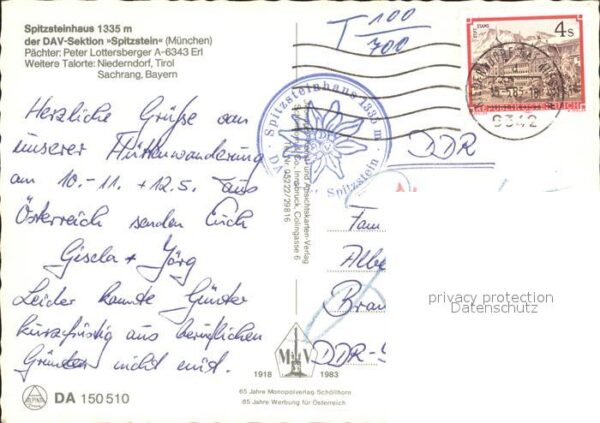 Spitzsteinhaus 1335 m
der DAV-Sektion »Spitzstein« (München)
Pächter: Peter Lottersberger A-6343 Erl
Weitere Talorte: Niederndorf, Tirol
Sachrang, Bayern
T 100
700
4 S
STIFT STAMS
REPUBLIK ÖSTERREICH
9342
Spitzsteinhaus 1335 m
Spitzstein
DDR
Herzliche Grüße von
unserer Hüttenwanderung
am 10.-11. + 12.5. aus
Österreich senden Euch
Gisela + Jörg
Leider konnte Günter
kurzfristig aus beruflichen
Gründen nicht mit.
Ansichtskarten-Verlag
Innsbruck, Colingasse 6
05222/29816
Fam
Albe
Bran
DDR-
privacy protection
Datenschutz
M V
1918 1983
65 Jahre Monopolverlag Schöllhorn
65 Jahre Werbung für Österreich
ALPINA
DA 150 510